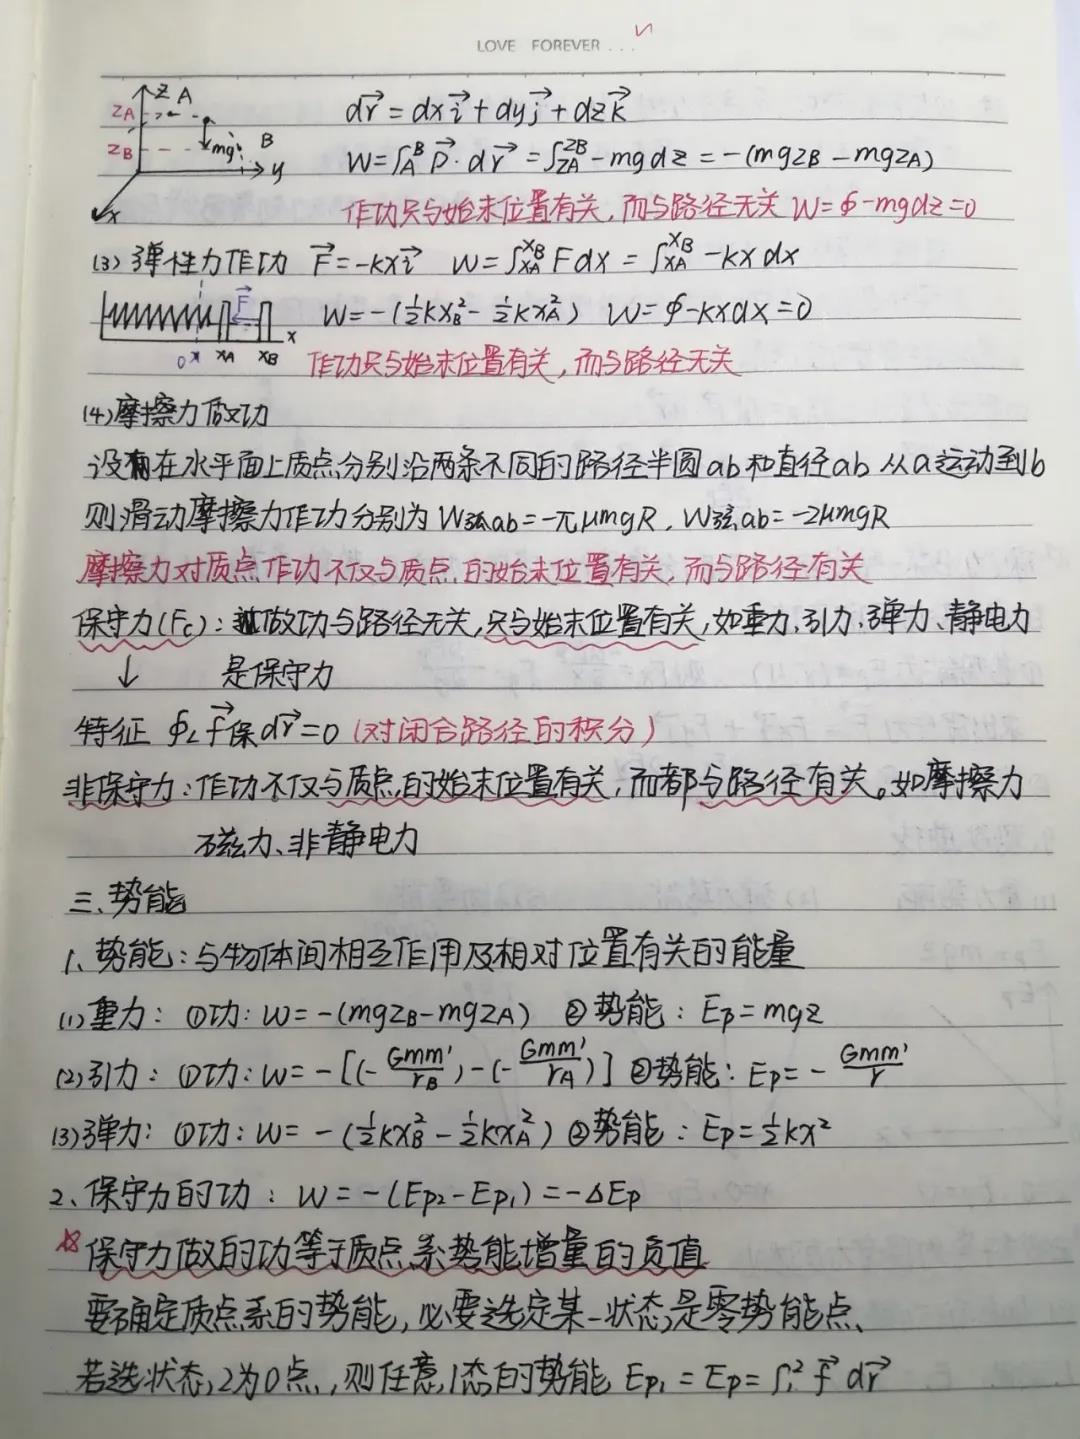 LOVE FOREVER ...
z A
zA
zB
mg
B
y
x
dr⃗ = dxi⃗ + dyj⃗ + dzk⃗
W=∫_A^B P⃗·dr⃗ = ∫_{zA}^{zB} -mgdz = -(mgzB - mgzA)
作功只与始末位置有关,而与路径无关 W=∮-mgdz=0
(3) 弹性力作功 F⃗=-kxi⃗ W=∫_{xA}^{xB} Fdx = ∫_{xA}^{xB} -kxdx
F⃗
W=-(½kx_B²- ½kx_A²) W=∮-kxdx=0
0 x xA xB x
作功只与始末位置有关,而与路径无关
(4)摩擦力做功
设有在水平面上质点分别沿两条不同的路径半圆ab和直径ab从a运动到b
则滑动摩擦力作功分别为W弧ab=-πμmgR,W弦ab=-2μmgR
摩擦力对质点作功不仅与质点的始末位置有关,而与路径有关
保守力(Fc):做功与路径无关,只与始末位置有关,如重力、引力、弹力、静电力
↓ 是保守力
特征 ∮_L f⃗保dr⃗=0 (对闭合路径的积分)
非保守力:作功不仅与质点的始末位置有关,而都与路径有关。如摩擦力
磁力、非静电力
三、势能
1、势能:与物体间相互作用及相对位置有关的能量
(1)重力: ①功:W=-(mgzB-mgzA) ②势能:Ep=mgz
(2)引力: ①功:W=-[(-Gmm'/rB)-(-Gmm'/rA)] ②势能:Ep=-Gmm'/r
(3)弹力: ①功:W=-(½kx_B²-½kx_A²) ②势能:Ep=½kx²
2、保守力的功: W=-(Ep2-Ep1)=-ΔEp
☆保守力做的功等于质点系势能增量的负值
要确定质点系的势能,必要选定某一状态是零势能点、
若选状态2为0点,则任意1态的势能 Ep1=Ep=∫₁² f⃗ dr⃗